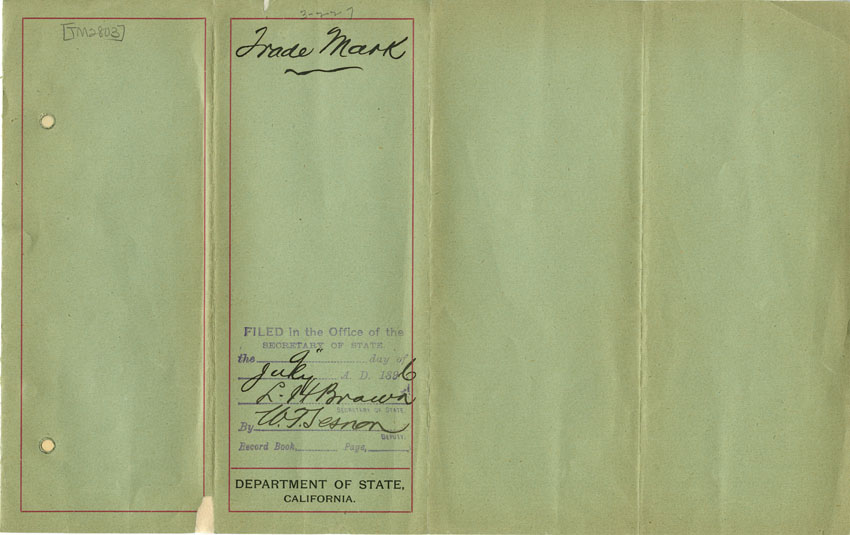 [TM2803]
3-227
Trade Mark
FILED in the Office of the
SECRETARY OF STATE.
the 9" day of
July A. D. 1896
L. H. Brown
SECRETARY OF STATE.
By W. T. Sesnon
DEPUTY.
Record Book, Page,
DEPARTMENT OF STATE,
CALIFORNIA.